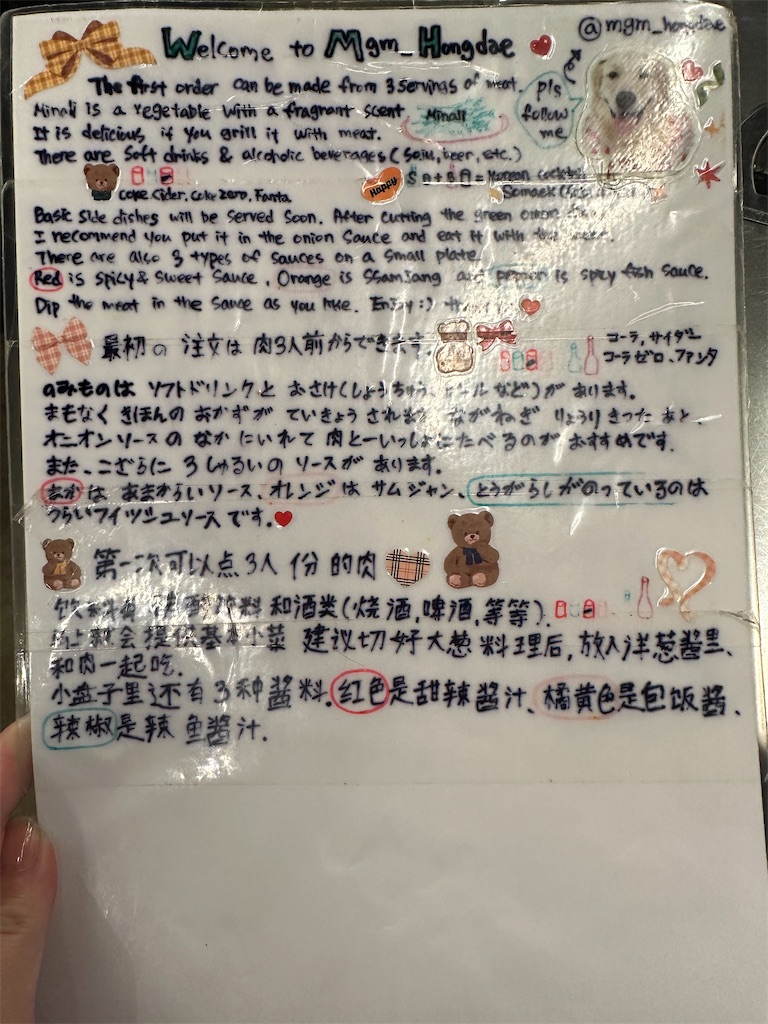 @mgm_hongdae
Welcome to Mgm_Hongdae
The first order can be made from 3 servings of meat.
pls
follow
me
Minali is a vegetable with a fragrant scent
Minali
It is delicious if you grill it with meat.
There are Soft drinks & alcoholic beverages (Soju, beer, etc.)
Happy
= Korean cocktail
Somaek
Coke Cider, Coke zero, Fanta
Basic Side dishes will be served soon. After cutting the green onion
I recommend you put it in the onion sauce and eat it with the meat.
There are also 3 types of sauces on a small plate.
Red is spicy & sweet sauce, Orange is SSamJang and pepper is spicy fish sauce.
Dip the meat in the sauce as you like. Enjoy :)
最初の 注文は 肉3人前からできます。
コーラ, サイダー
コーラゼロ, ファンタ
のみものは ソフトドリンクと おさけ(しょうちゅう, ビール など)が あります。
まもなく きほんの おかずが ていきょう されます ながねぎ りょうり きった あと、
オニオンソースの なか にいれて 肉と一いっしょにたべるのが おすすめです.
また、こざらに 3しゅるいの ソースが あります。
あかは あまからいソース、オレンジは サムジャン、とうがらしがのっているのは
つらいフイツシユソース です。
第一次可以点3人 份 的肉
料和酒类(烧酒,啤酒,等等).
会提供基本小菜 建议切好大葱料理后,放入洋葱酱里、
和肉一起吃.
小盘子里还有3种酱料.红色是甜辣酱汁、橘黄色是包饭酱、
辣椒是辣 鱼酱汁.